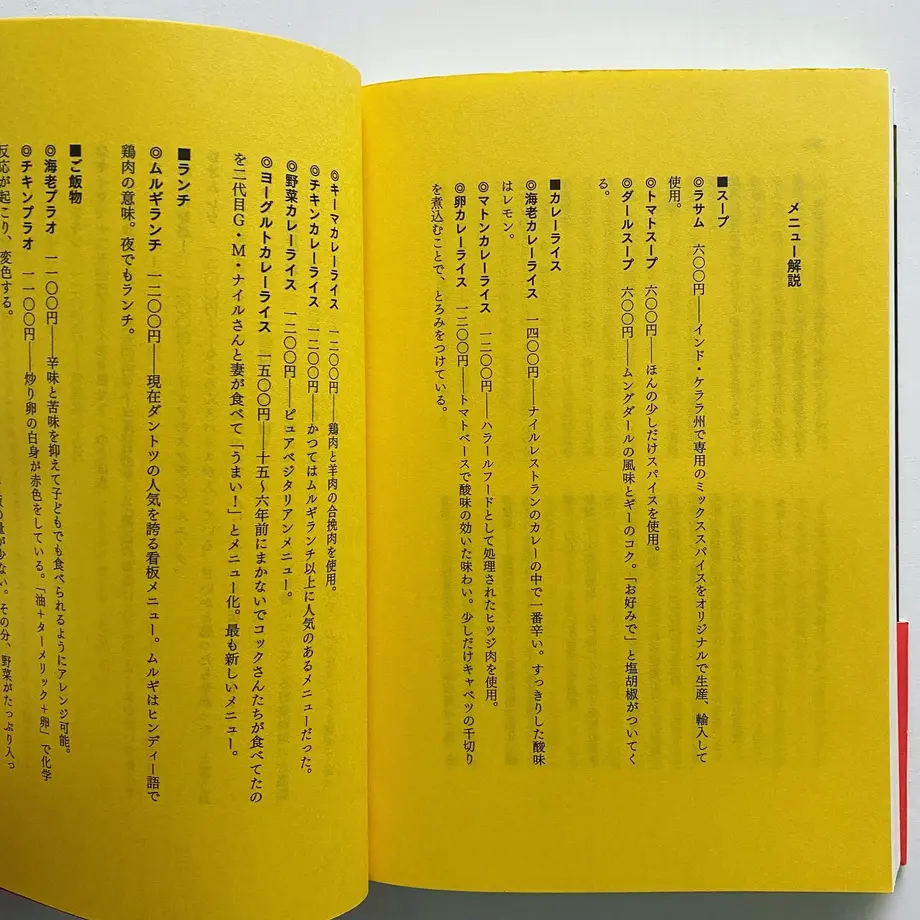 メニュー解説
■スープ
◎ラサム　六〇〇円——インド・ケララ州で専用のミックススパイスをオリジナルで生産、輸入して
使用。
◎トマトスープ　六〇〇円——ほんの少しだけスパイスを使用。
◎ダールスープ　六〇〇円——ムングダールの風味とギーのコク。「お好みで」と塩胡椒がついてく
る。
■カレーライス
◎海老カレーライス　一四〇〇円——ナイルレストランのカレーの中で一番辛い。すっきりした酸味
はレモン。
◎マトンカレーライス　一二〇〇円——ハラールフードとして処理されたヒツジ肉を使用。
◎卵カレーライス　一二〇〇円——トマトベースで酸味の効いた味わい。少しだけキャベツの千切り
を煮込むことで、とろみをつけている。
◎キーマカレーライス　一二〇〇円——鶏肉と羊肉の合挽肉を使用。
◎チキンカレーライス　一二〇〇円——かつてはムルギランチ以上に人気のあるメニューだった。
◎野菜カレーライス　一二〇〇円——ピュアベジタリアンメニュー。
◎ヨーグルトカレーライス　一五〇〇円——十五〜六年前にまかないでコックさんたちが食べてたの
を二代目G・M・ナイルさんと妻が食べて「うまい！」とメニュー化。最も新しいメニュー。
■ランチ
◎ムルギランチ　一二〇〇円——現在ダントツの人気を誇る看板メニュー。ムルギはヒンディー語で
鶏肉の意味。夜でもランチ。
■ご飯物
◎海老プラオ　一一〇〇円——辛味と苦味を抑えて子どもでも食べられるようにアレンジ可能。
◎チキンプラオ　一一〇〇円——炒り卵の白身が赤色をしている。「油＋ターメリック＋卵」で化学
反応が起こり、変色する。
が少ない。その分、野菜がたっぷり入っ